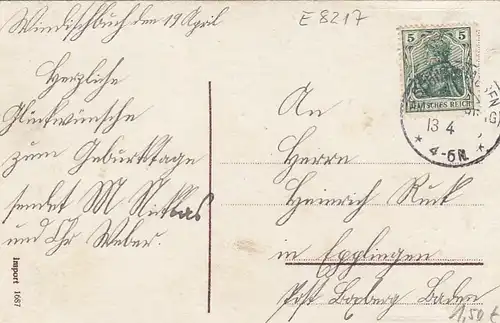 Windischbuch den 19 April
E 8217
Herzliche
Glückwünsche
zum Geburtstage
sendet M
und Chr Weber.
An
Herrn
Heinrich Ruck
in Epplingen
Post Boxberg Baden
5 5
DEUTSCHES REICH
13 4
4-5N.
Import 1687
1,50 €